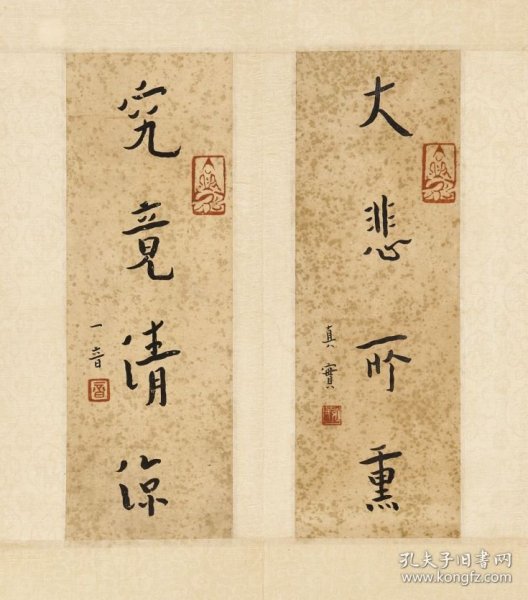 大悲所熏
真實
究竟清涼
一音
音
孔夫子旧书网
www.kongfz.com